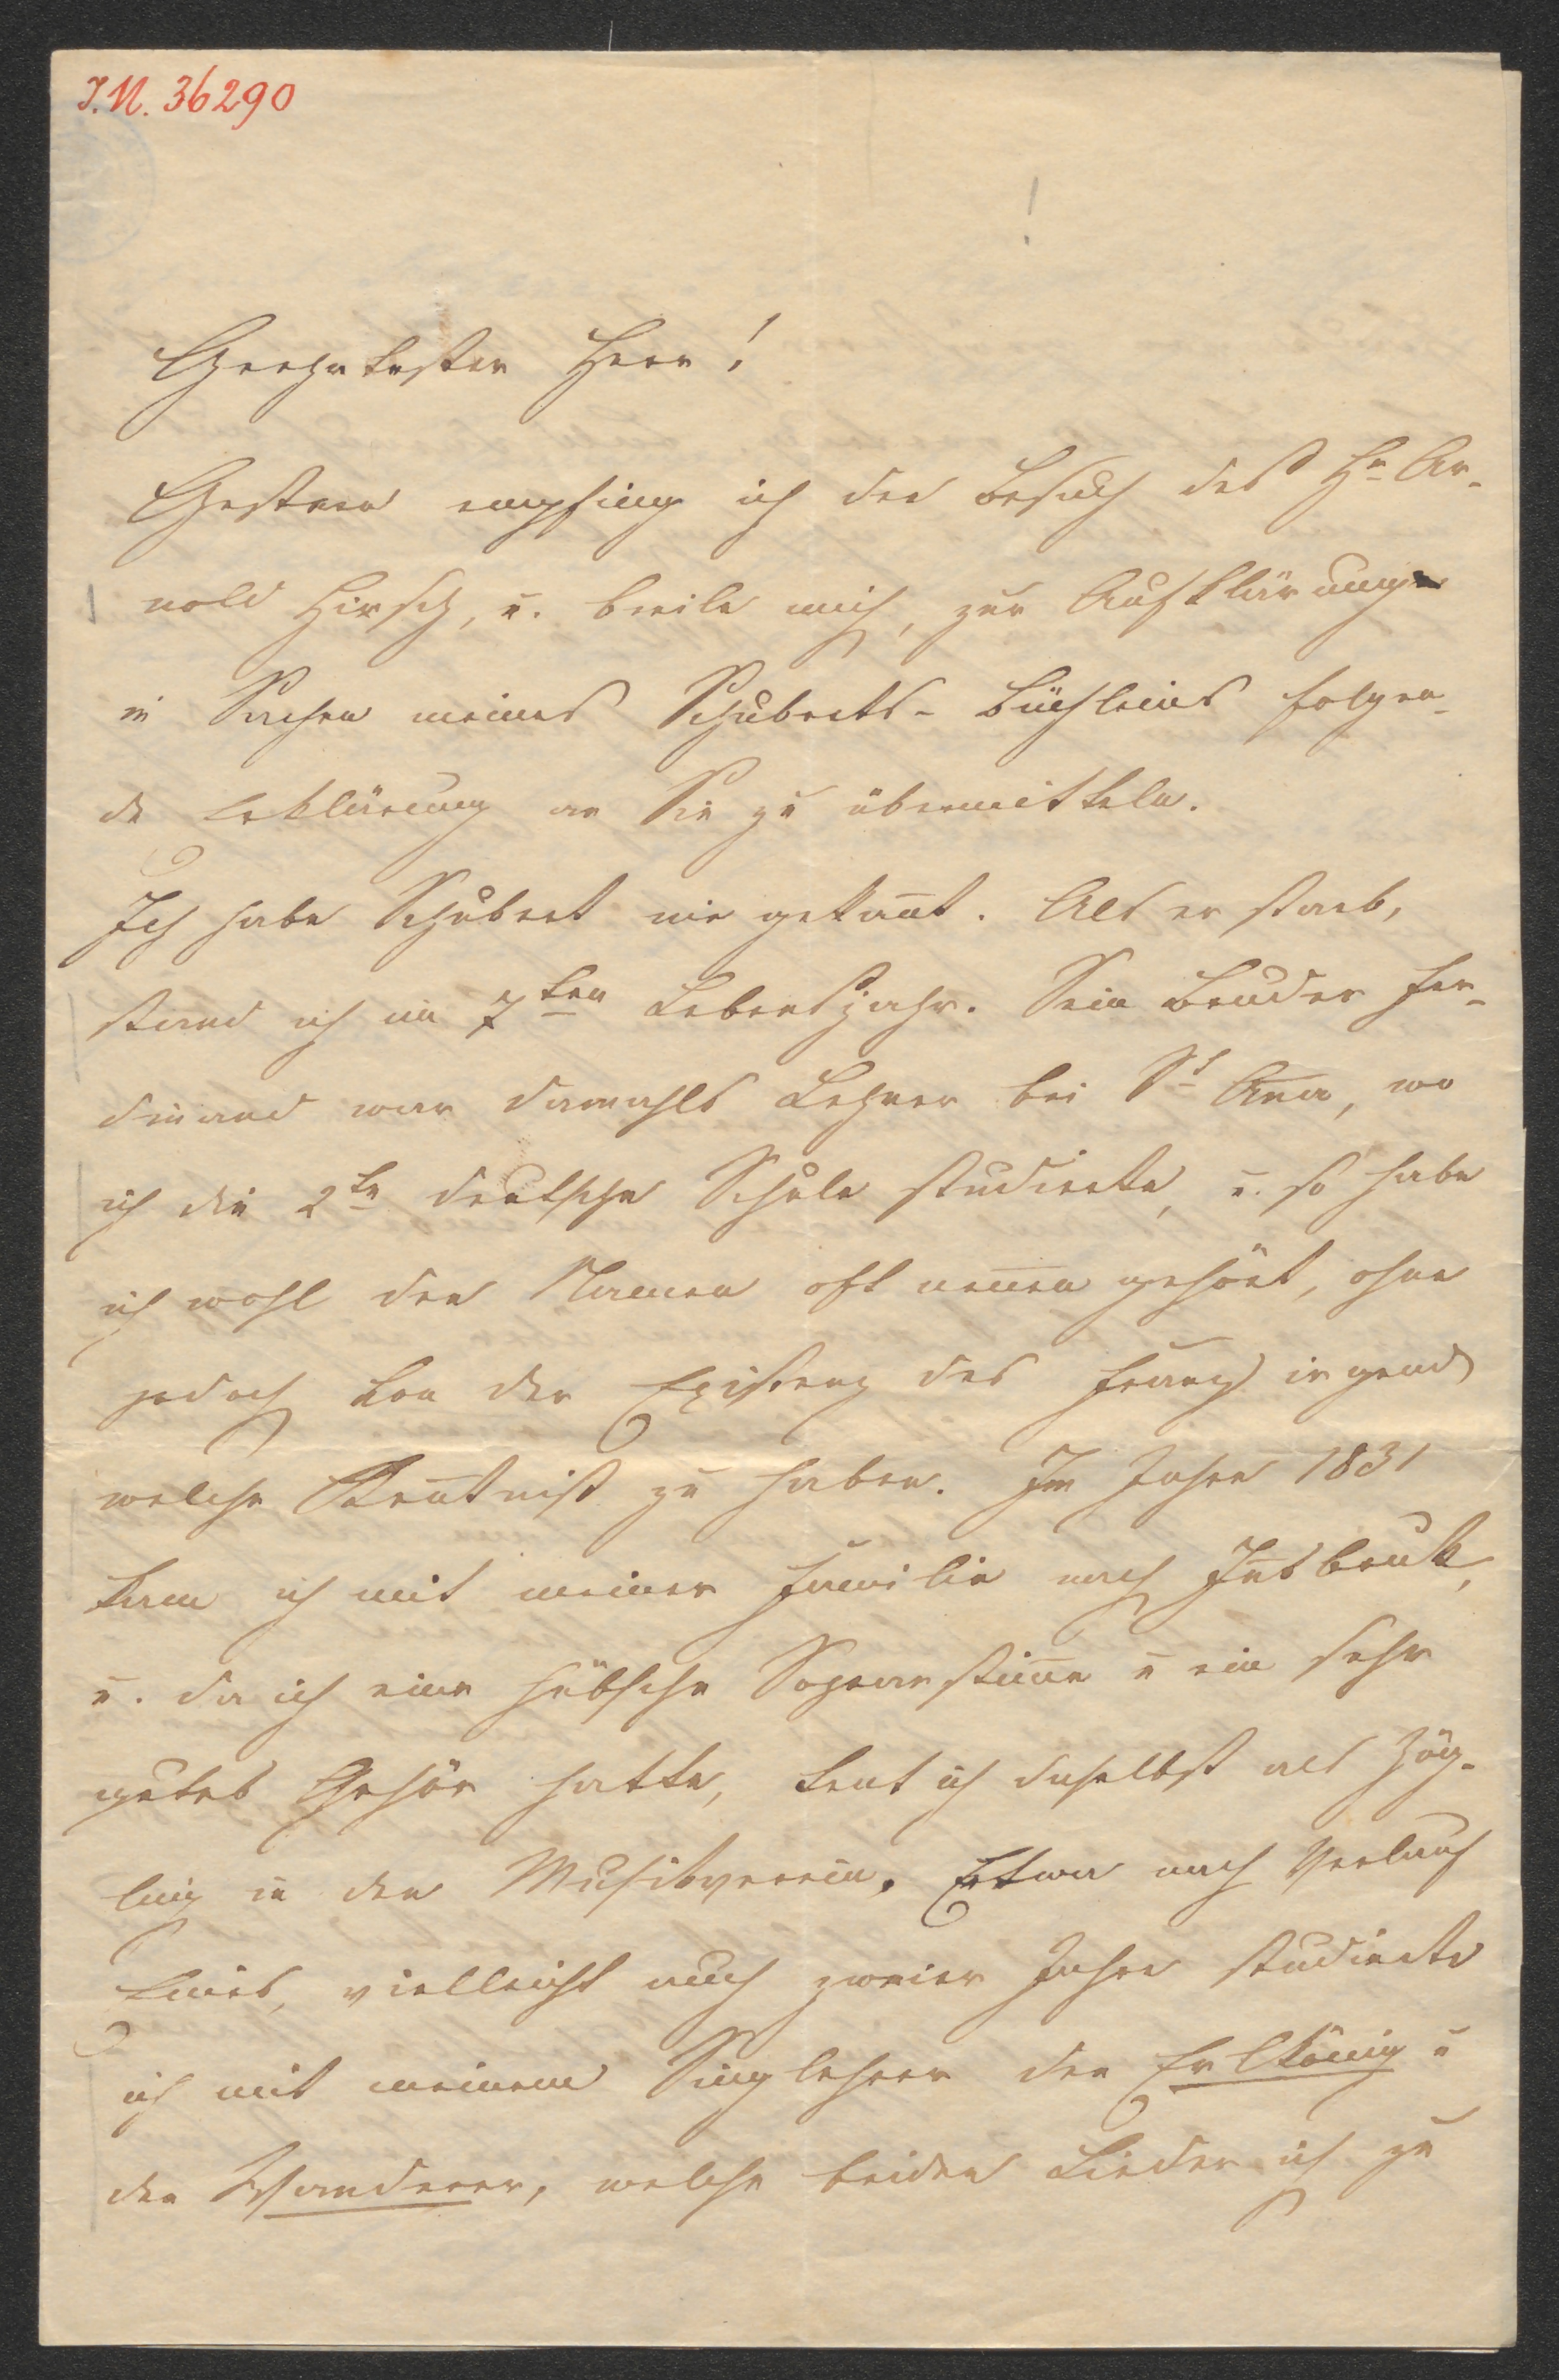 I.N. 36290
!
Geehrtester Herr!
Gestern empfing ich den Besuch des Hr. Ar-
nold Hirsch, u. beeile mich, zur Aufklärung
in Sachen meines Schuberts-Büchleins folgen-
de Erklärung an Sie zu übermitteln.
Ich habe Schubert nie gekan̅t. Als er starb,
stand ich im 7ten Lebensjahr. Sein Bruder Fer-
dinand war damahls Lehrer bei St An̅a, wo
ich die 2te deutsche Schule studierte, u. so habe
ich wohl den Namen oft nen̅en gehört, ohne
jedoch von der Existenz des Franz irgend
welche Ken̅tniß zu haben. Im Jahre 1831
kam ich mit meiner Familie nach In̅sbruk,
u. da ich eine hübsche Sopranstim̅e u ein sehr
gutes Gehör hatte, trat ich daselbst als Zög-
ling in den Musikverein. Etwa nach Verlauf
Eines, vielleicht auch zweier Jahre studierte
ich mit meinem Singlehrer den Erlkönig u
den Wanderer, welche beiden Lieder ich zu